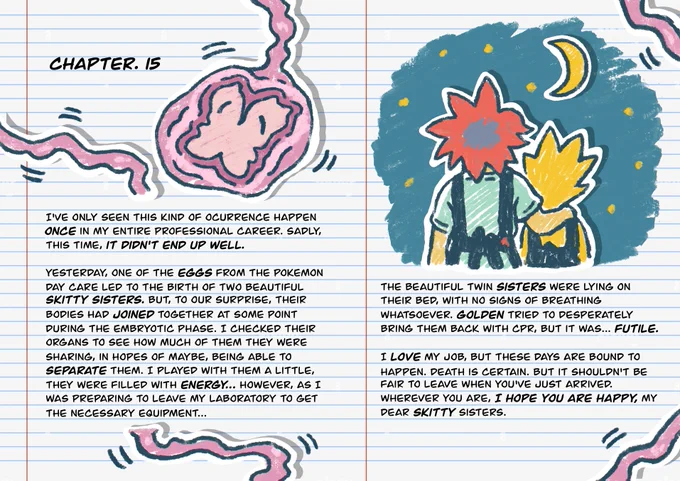 CHAPTER. 15
I'VE ONLY SEEN THIS KIND OF OCURRENCE HAPPEN
ONCE IN MY ENTIRE PROFESSIONAL CAREER. SADLY,
THIS TIME, IT DIDN'T END UP WELL.
YESTERDAY, ONE OF THE EGGS FROM THE POKEMON
DAY CARE LED TO THE BIRTH OF TWO BEAUTIFUL
SKITTY SISTERS. BUT, TO OUR SURPRISE, THEIR
BODIES HAD JOINED TOGETHER AT SOME POINT
DURING THE EMBRYOTIC PHASE. I CHECKED THEIR
ORGANS TO SEE HOW MUCH OF THEM THEY WERE
SHARING, IN HOPES OF MAYBE, BEING ABLE TO
SEPARATE THEM. I PLAYED WITH THEM A LITTLE,
THEY WERE FILLED WITH ENERGY... HOWEVER, AS I
WAS PREPARING TO LEAVE MY LABORATORY TO GET
THE NECESSARY EQUIPMENT...
THE BEAUTIFUL TWIN SISTERS WERE LYING ON
THEIR BED, WITH NO SIGNS OF BREATHING
WHATSOEVER. GOLDEN TRIED TO DESPERATELY
BRING THEM BACK WITH CPR, BUT IT WAS... FUTILE.
I LOVE MY JOB, BUT THESE DAYS ARE BOUND TO
HAPPEN. DEATH IS CERTAIN. BUT IT SHOULDN'T BE
FAIR TO LEAVE WHEN YOU'VE JUST ARRIVED.
WHEREVER YOU ARE, I HOPE YOU ARE HAPPY, MY
DEAR SKITTY SISTERS.